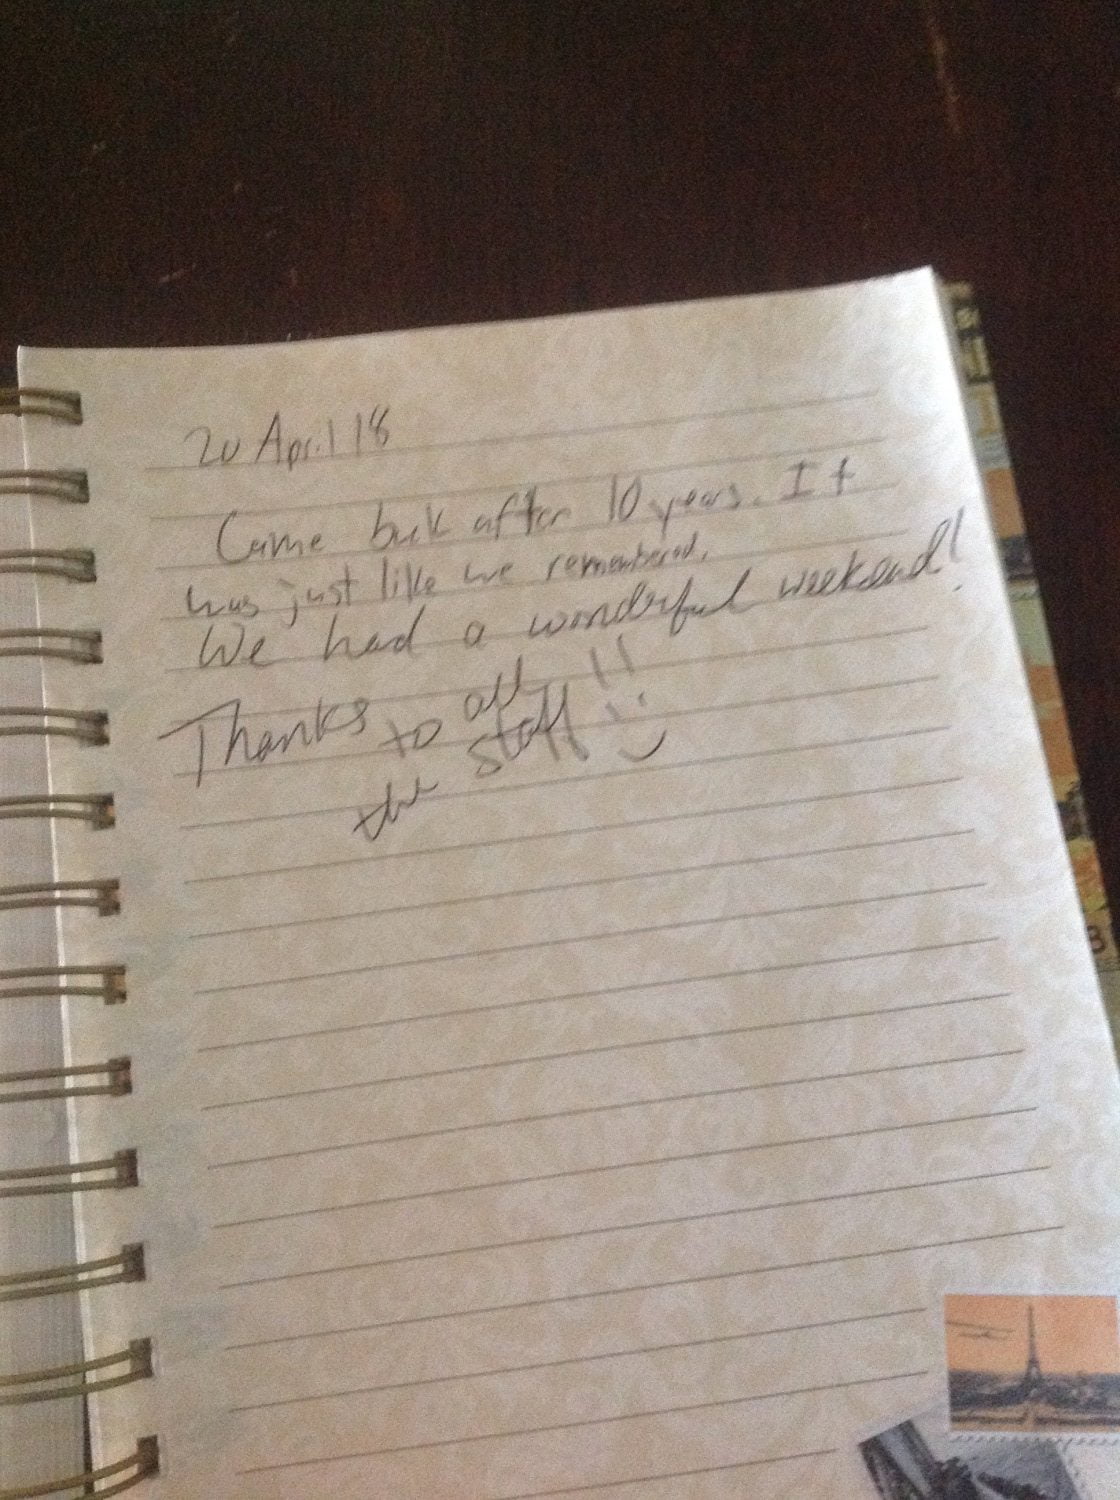 20 April 18
Came back after 10 years. It
was just like we remembered.
We had a wonderful weekend!
Thanks to all
the staff!!